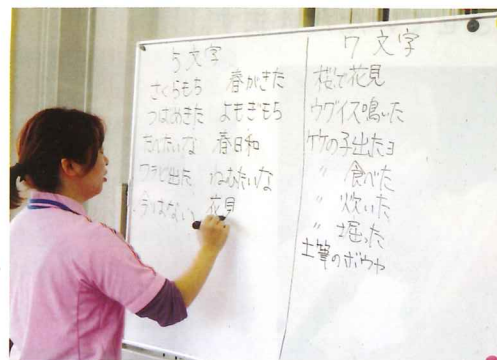 5文字
さくらもち 春がきた
つばめきた よもぎもち
たべたいな 春日和
ワラビ出た ねむたいな
花見
7文字
桜で花見
ウグイス鳴いた
タケの子出たョ
〃 食べた
〃 炊いた
〃 掘った
土筆のボウヤ